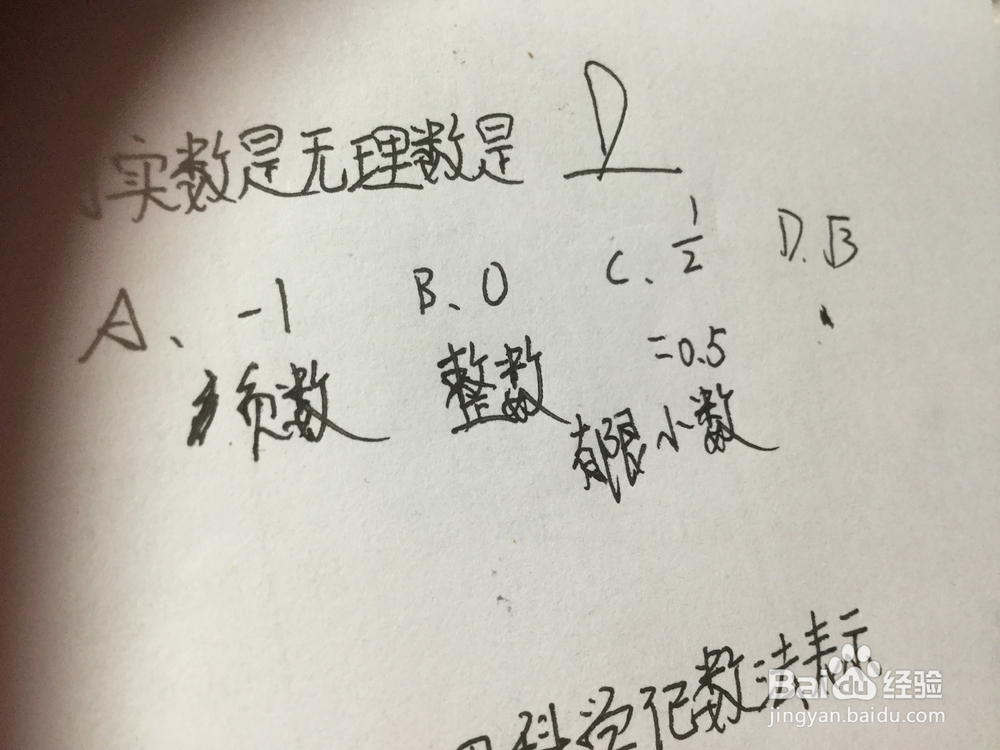 实数是无理数是 D
A、-1 B、0 C、1/2 D.√3
负数 整数 =0.5
有限小数
科学记数法表示
Baidu 经验
jingyan.baidu.com